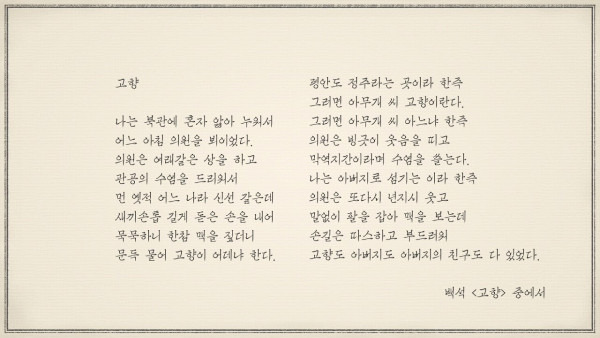 고향
나는 북관에 혼자 앓아 누워서
어느 아침 의원을 뵈이었다.
의원은 여래같은 상을 하고
관공의 수염을 드리워서
먼 옛적 어느 나라 신선 같은데
새끼손톱 길게 돋은 손을 내어
묵묵하니 한참 맥을 짚더니
문득 물어 고향이 어데냐 한다.
평안도 정주라는 곳이라 한즉
그러면 아무개 씨 고향이란다.
그러면 아무개 씨 아느냐 한즉
의원은 빙긋이 웃음을 띠고
막역지간이라며 수염을 쓴다.
나는 아버지로 섬기는 이라 한즉
의원은 또다시 넌지시 웃고
말없이 팔을 잡아 맥을 보는데
손길은 따스하고 부드러워
고향도 아버지도 아버지의 친구도 다 있었다.
백석 <고향> 중에서